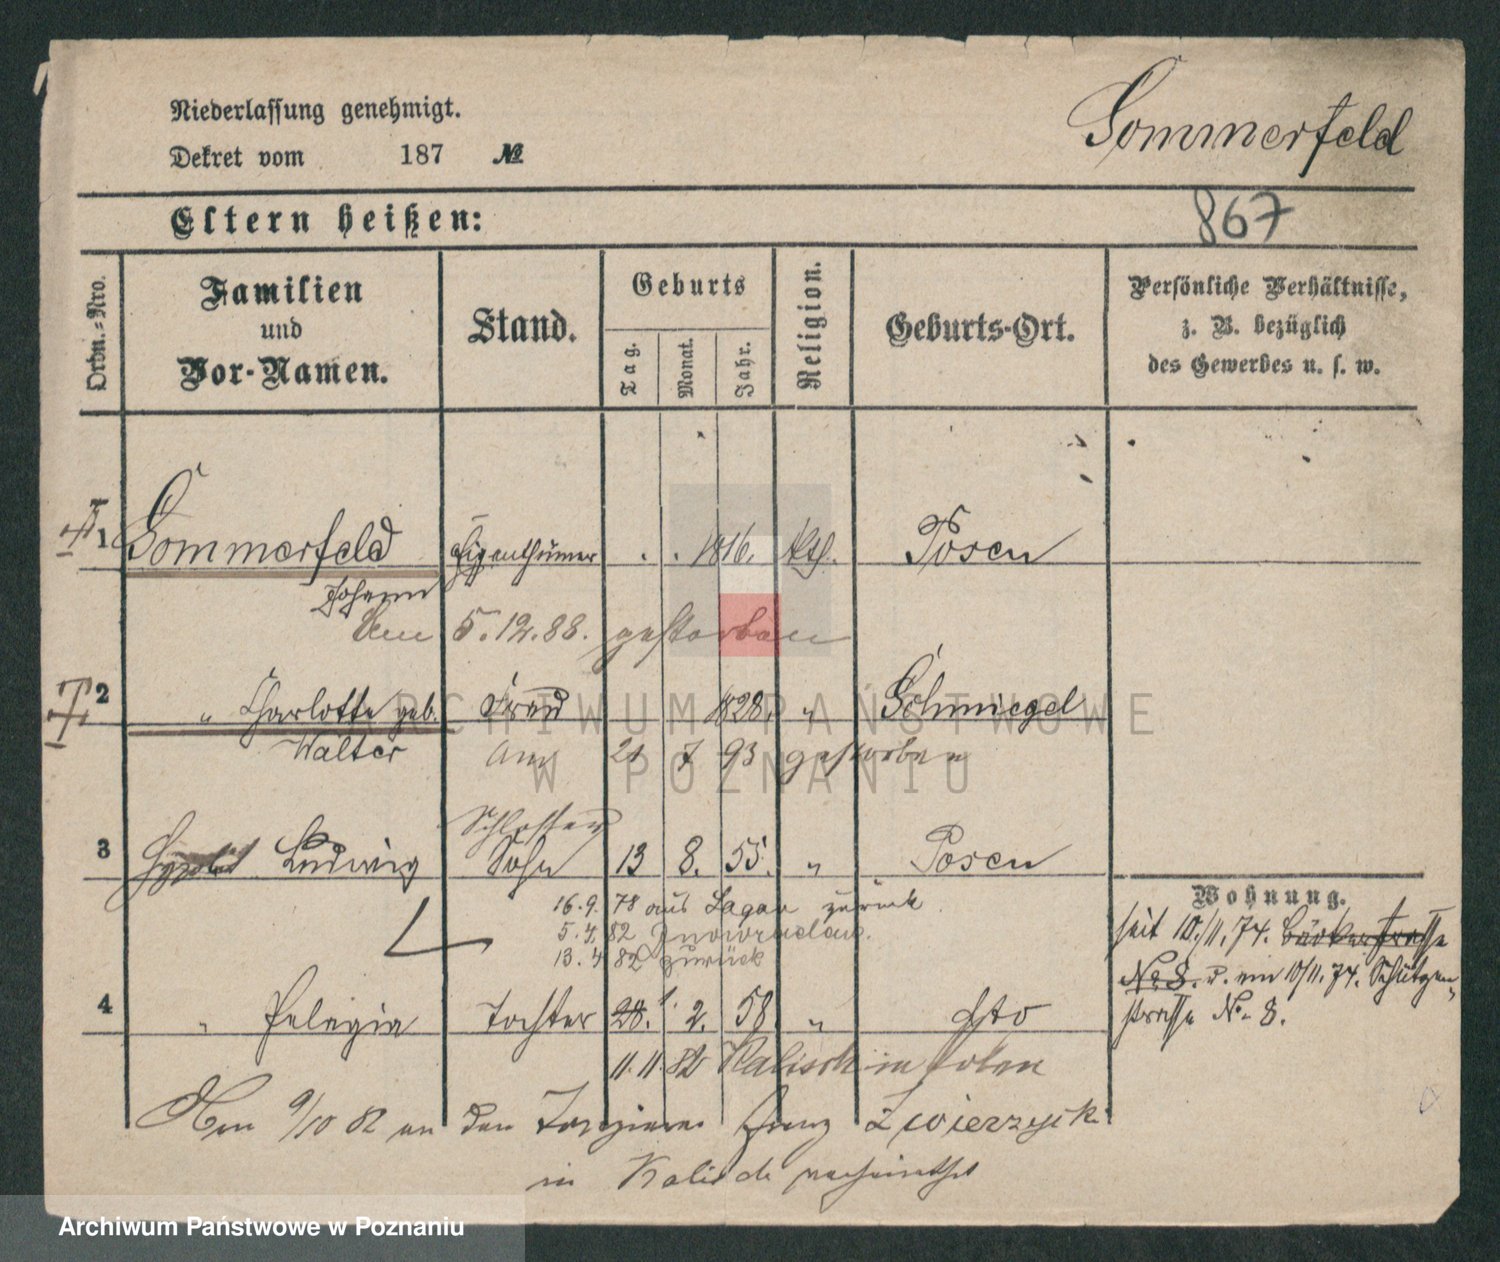 Sommerfeld
Niederlassung genehmigt.
Dekret vom 187 №
867
Eltern heißen:
Ordn.=Nro.
Familien
und
Vor-Namen.
Stand.
Geburts
Tag.
Monat.
Jahr.
Religion.
Geburts-Ort.
Persönliche Verhältnisse,
z. B. bezüglich
des Gewerbes u. s. w.
1 Sommerfeld Eigenthümer . . 1816. kth. Posen
Johann
Am 5.12.88. gestorben
2 „ Charlotte geb. Frau 1828. „ Schmiegel
Walter am 21 7 93 gestorben
Schlosser
3 Ludwig Sohn 13 8. 55. „ Posen
16.9. 78 aus Sagan zurück
5.4. 82 Inowraclaw.
13.4 82 zurück
4 „ Pelagia Tochter 28. 1. 2. 58 „ dto
11.11.82 Kalisch in Polen
9/10 82 an den Franz Zwierzycki
in Kalisch verheirathet
Wohnung.
seit 10/11.74. Bäckerstrasse
No 8. v. 10/11.74. Schützen-
strasse No. 8.
ARCHIWUM PAŃSTWOWE
W POZNANIU
Archiwum Państwowe w Poznaniu